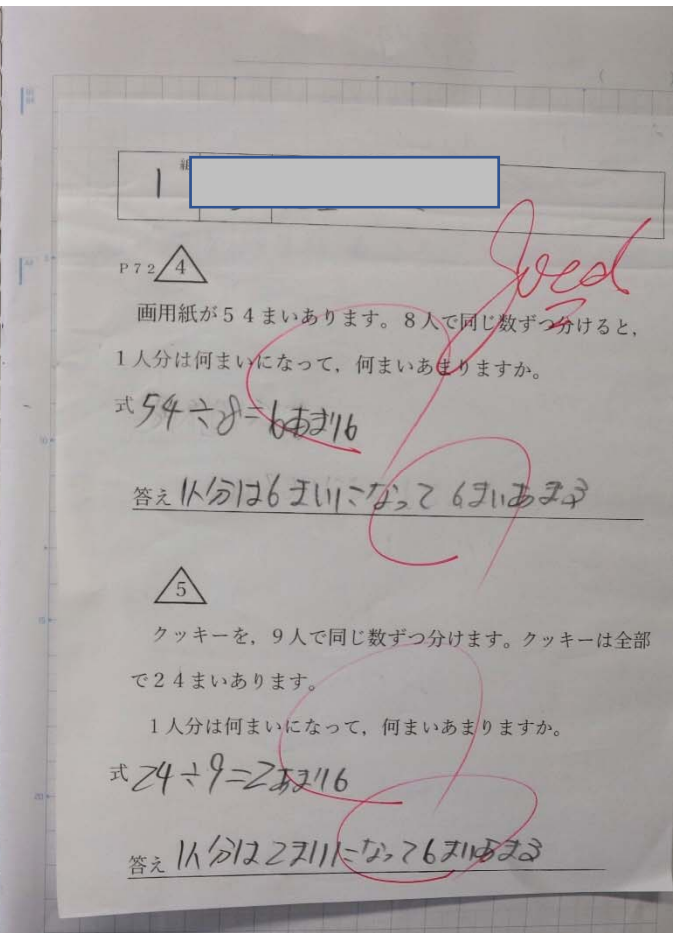 1 組
Good
P72 4
画用紙が54まいあります。8人で同じ数ずつ分けると，
1人分は何まいになって，何まいあまりますか。
式 54÷8=6あまり6
答え 1人分は6まいになって 6まいあまる
5
クッキーを，9人で同じ数ずつ分けます。クッキーは全部
で24まいあります。
1人分は何まいになって，何まいあまりますか。
式 24÷9=2あまり6
答え 1人分は2まいになって6まいあまる